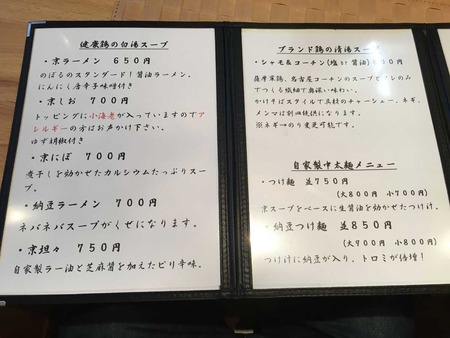 健康鶏の白湯スープ
・京ラーメン 650円
のぼるのスタンダード！醤油ラーメン。
にんにく唐辛子味噌付き
・京しお 700円
トッピングに小海老が入っていますのでア
レルギーの方はお声かけ下さい。
ゆず胡椒付き
・京にぼ 700円
煮干しを効かせたカルシウムたっぷりスー
プ。
・納豆ラーメン 700円
ネバネバスープがくせになります。
・京坦々 750円
自家製ラー油と芝麻醤を加えたピリ辛味。
ブランド鶏の清湯スープ
・シャモ&コーチン(塩or醤油)
薩摩軍鶏、名古屋コーチンのスープとタレのみ
でつくる繊細で奥深い味わい。
かけそばスタイルで具材のチャーシュー、ネギ、
メンマは別皿提供になります。
※ネギ→のり変更可能です。
自家製中太麺メニュー
・つけ麺 並750円
(大800円 小700円)
京スープをベースに生醤油を効かせたつけ汁。
・納豆つけ麺 並850円
(大900円 小800円)
つけ汁に納豆が入り、トロミが倍増！